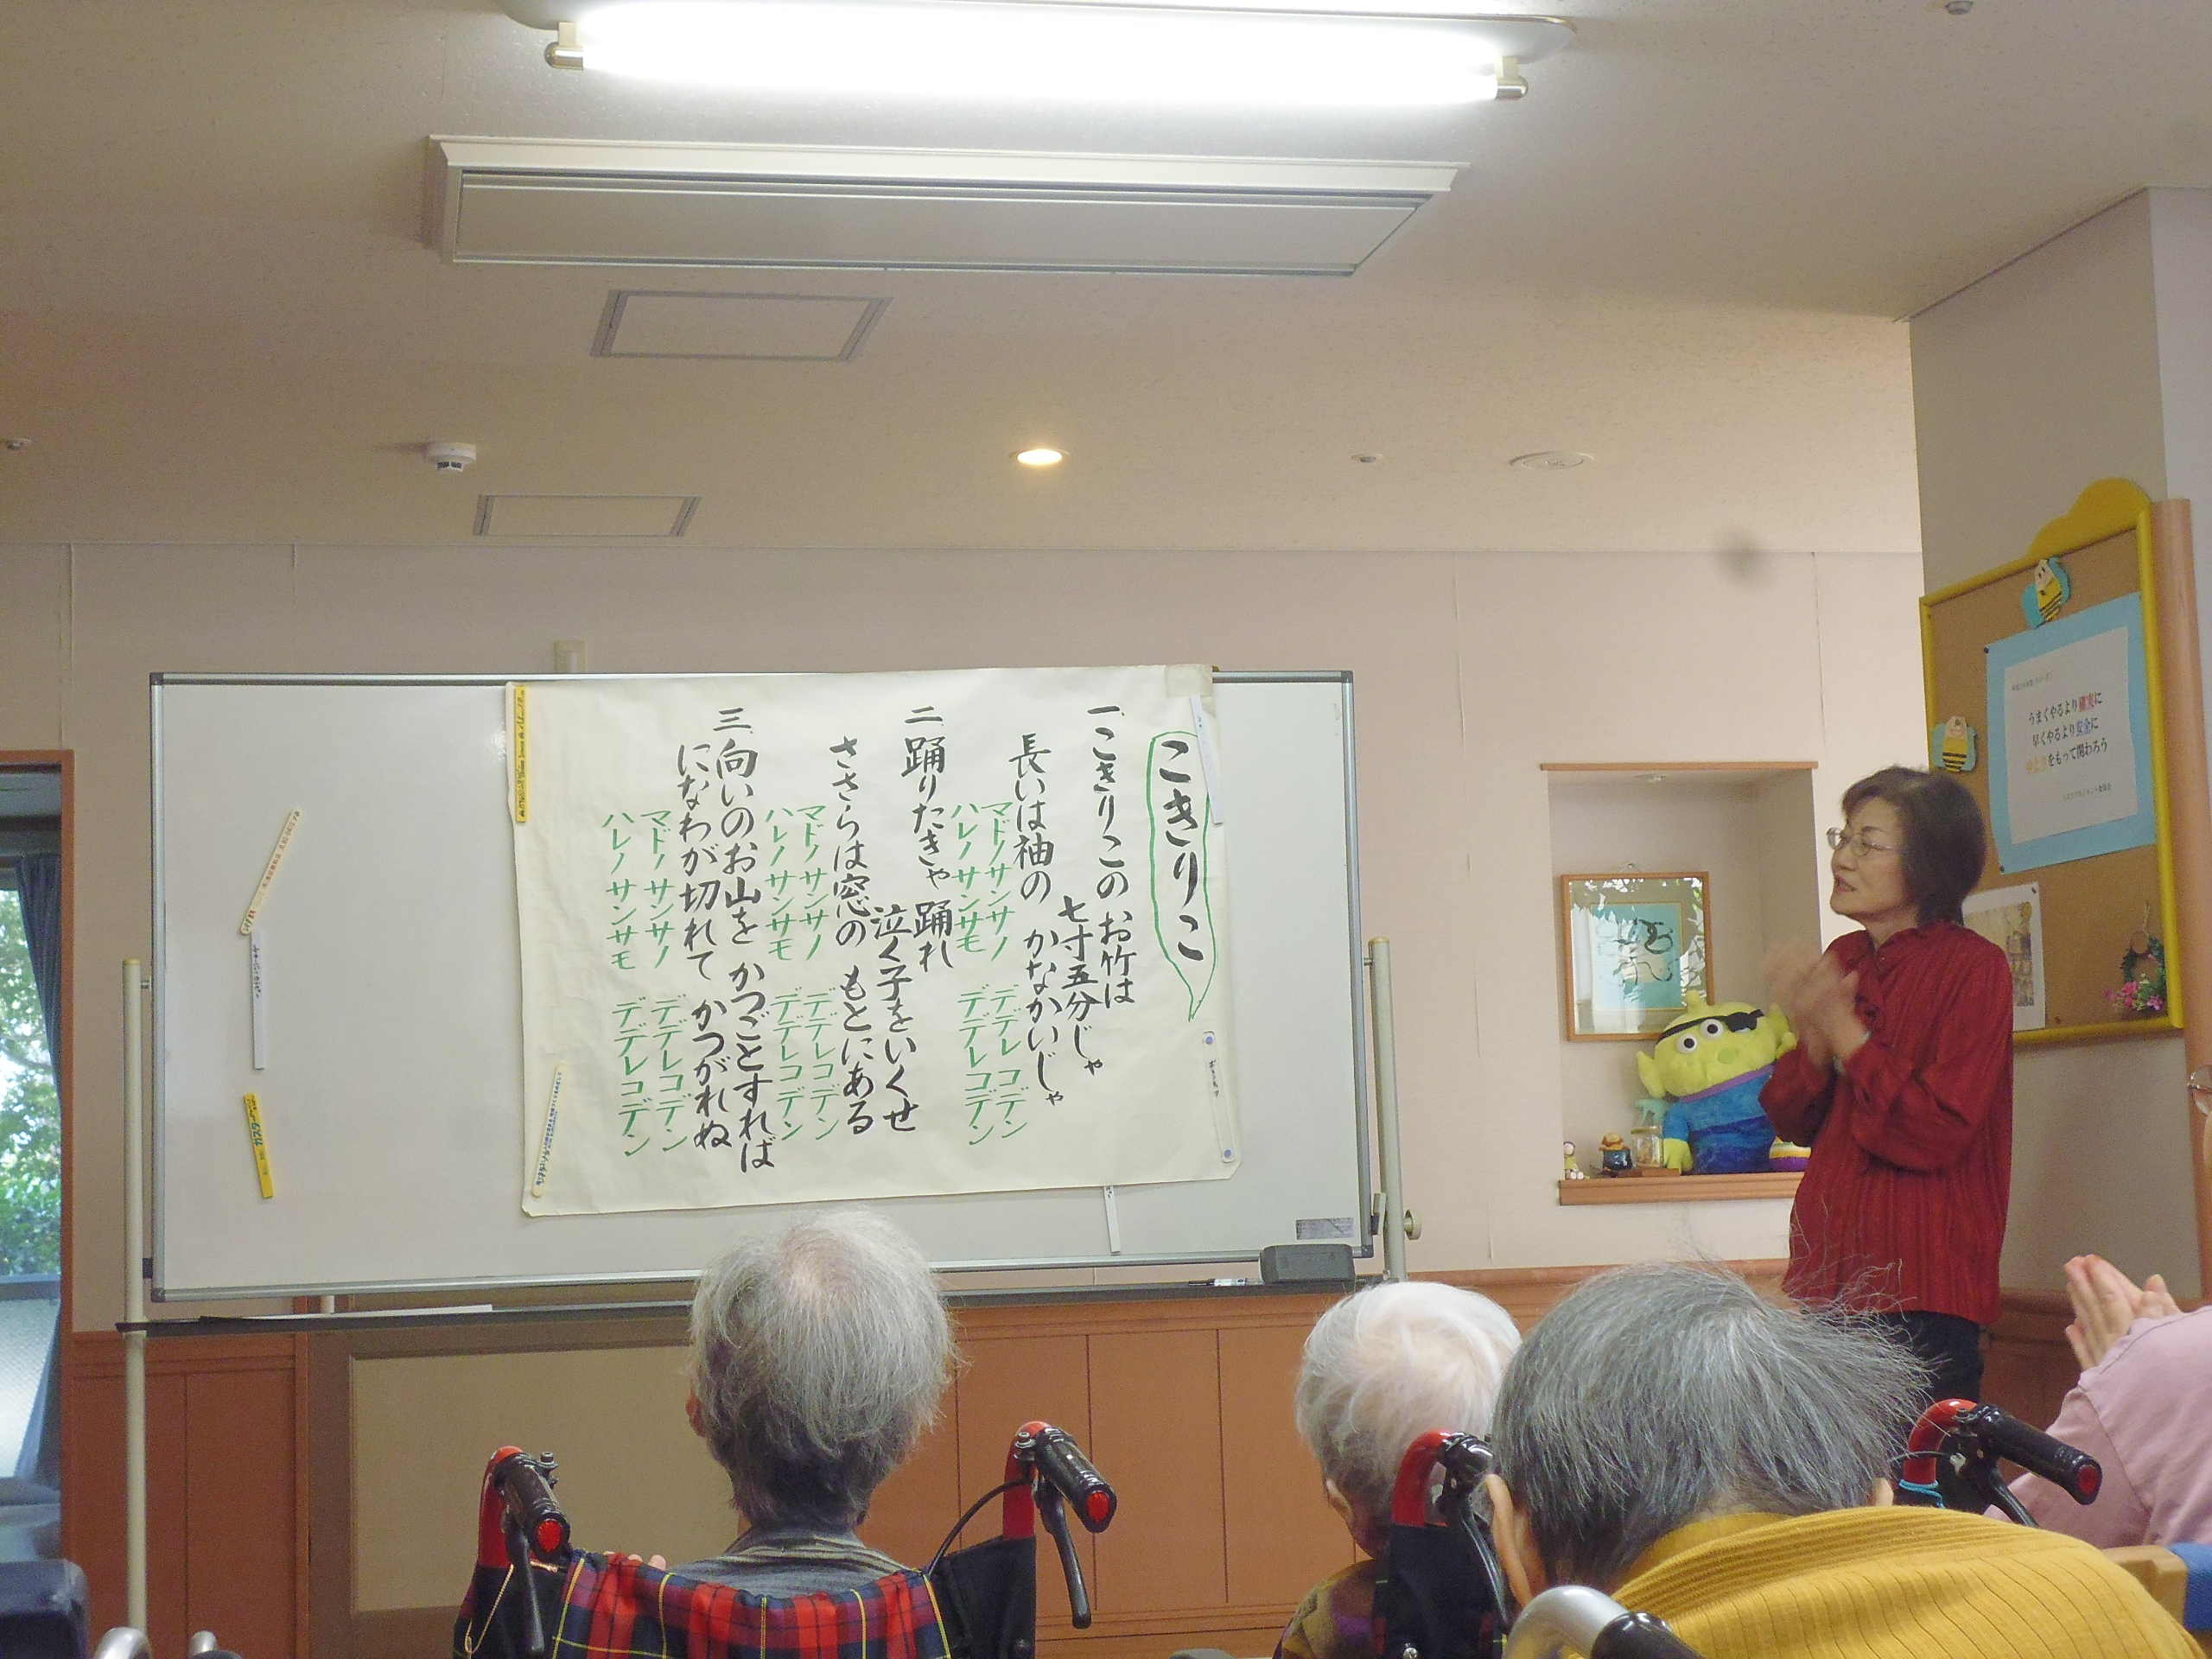 こきりこ
一、こきりこの お竹は
七寸五分じゃ
長いは袖の かなかいじゃ
マドノサンサノ デデレコデン
ハレノサンサモ デデレコデン
二、踊りたきゃ 踊れ
泣く子をいくせ
ささらは窓の もとにある
マドノサンサノ デデレコデン
ハレノサンサモ デデレコデン
三、向いのお山を かつごとすれば
になわが切れて かつがれぬ
マドノサンサノ デデレコデン
ハレノサンサモ デデレコデン
うまくやるより確実に
早くやるより安全に
ゆとりをもって関わろう